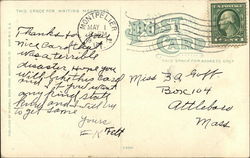 THIS SPACE FOR WRITING MESSAGES
MONTPELIER
MAY
POST
CARD
THIS SPACE FOR ADDRESS ONLY
Thanks for your
nice card. Yes it
was a terrible
disaster. Hope you
will like this card
if you want
any
to get some
Yours
E K Felt
Miss B A Goff
Box 104
Attleboro
Mass